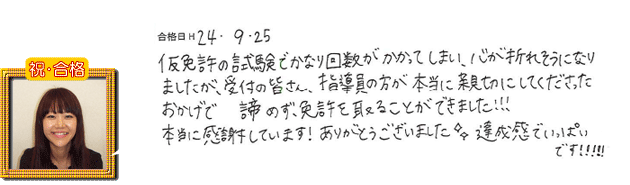 合格日 H24. 9.25
祝・合格
仮免許の試験でかなり回数がかかってしまい、心が折れそうになり
ましたが、受付の皆さん、指導員の方が本当に親切にしてくださった
おかげで 諦めず、免許を取ることができました!!!
本当に感謝しています!ありがとうございました 達成感でいっぱい
です!!!!!